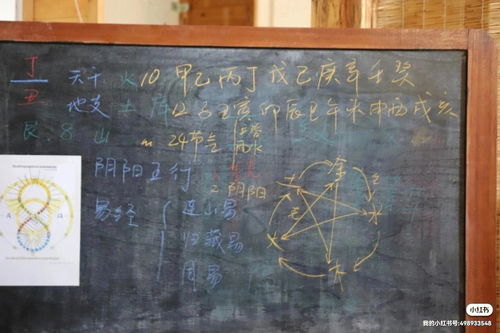 丁 天干 火 10 甲乙丙丁戊己庚辛壬癸
丑 地支 土 12 子丑寅卯辰巳午未申酉戌亥
艮:8 山 24节气
雨水
阴阳五行
2 阴阳
易经
连山易
归藏易
周易
金
土
水
火
木
小红书
我的小红书号:498933548